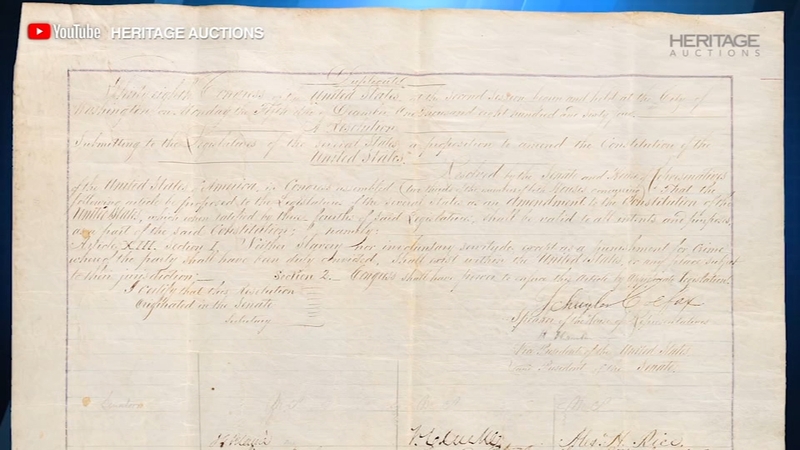 YouTube HERITAGE AUCTIONS
HERITAGE
AUCTIONS
Duplicate
Congress of the United States, at the Second Session, begun and held at the City of
Washington on Monday the Fifth day of December One Thousand eight hundred and sixty
A Resolution
Submitting to the Legislatures of the several States a proposition to amend the Constitution of the
United States.
Resolved by the Senate and House of Representatives
of the United States of America in Congress assembled (two thirds of both Houses concurring) That the
following article be proposed to the Legislatures of the several States as an amendment to the Constitution of the
United States, which when ratified by three-fourths of said Legislatures shall be valid to all intents and purposes,
as a part of the said Constitution; namely:
Article XIII. Section 1. Neither Slavery nor involuntary servitude except as a punishment for Crime
whereof the party shall have been duly convicted, Shall exist within the United States, or any place subject
to their jurisdiction; Section 2. Congress shall have power to enforce this Article by appropriate legislation.
I certify that this Resolution
Originated in the Senate
Secretary
Schuyler Colfax
Speaker of the House of Representatives
Vice President of the United States
and President of the Senate.
Alex. H. Rice